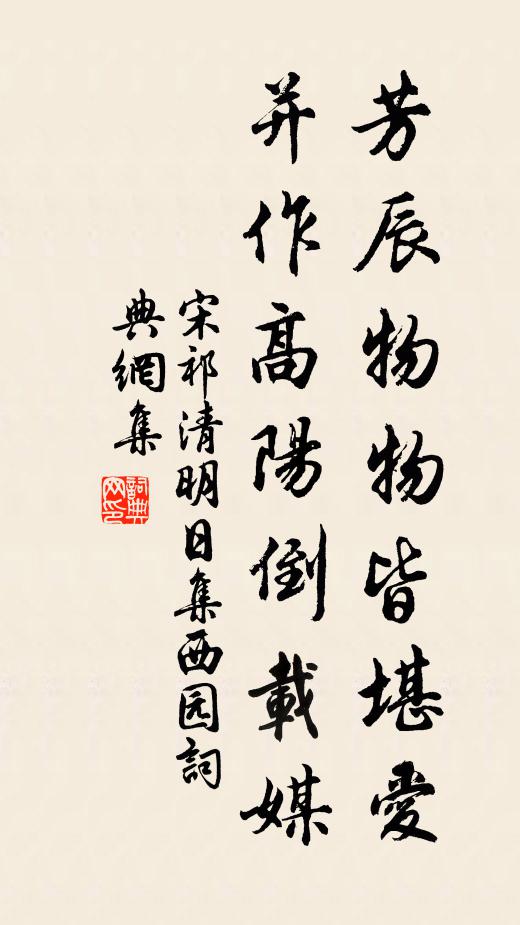 芳辰物物皆堪愛
并作高陽倒載媒
宋祁清明日集西园詞
典網集
詞典
网印